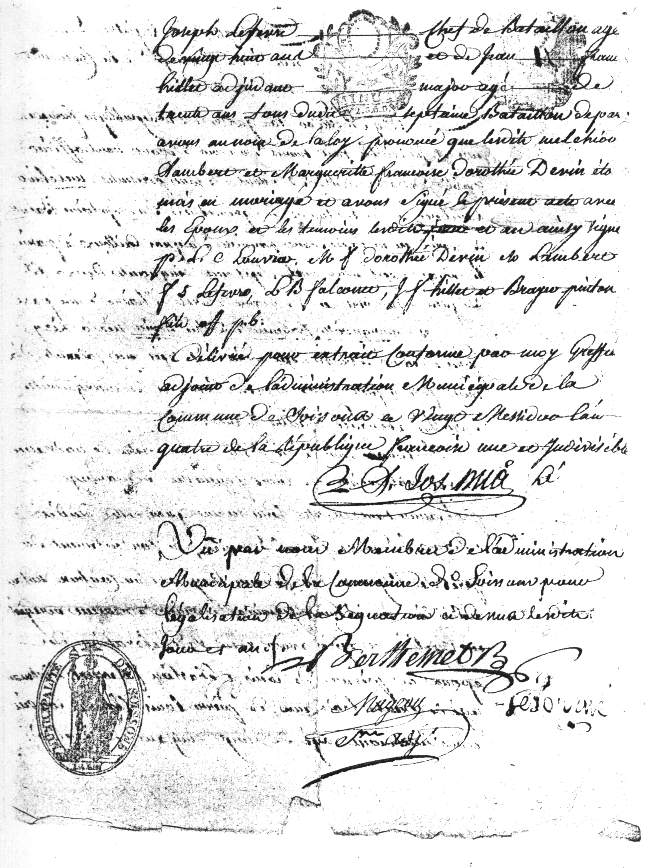 Joseph Lefevre Chef de Bataillon age
de vingt huit ans et de Jean
hillet adjudant major agé de
trente ans tous dudit septieme Bataillon de par
avons au nom de la loy prononcé que lesdits melchior
Lambert et Margueritte francoise dorothée Devin éto
mais en mariage et avons Signé le présent acte avec
les Epoux et les temoins lesdits jour et an ainsy signé
Louvia, M f dorothée Devin Lambert
J S Lefevre, L B falconet, J f hillet et Brayer pinton
fils off. pb.
Délivré pour extrait Conforme par moy Greffier
adjoint de l'administration Municipale de la
Commune de Soissons ce Vingt Messidor l'an
quatre de la République francoise une et Indivisible
Vu par nous Membres de l'administration
Municipale de la Commune de Soissons pour
légalisation de la Signature ci dessus lesdits
Jour et an
Berthemet
MUNICIPALITÉ DE SOISSONS